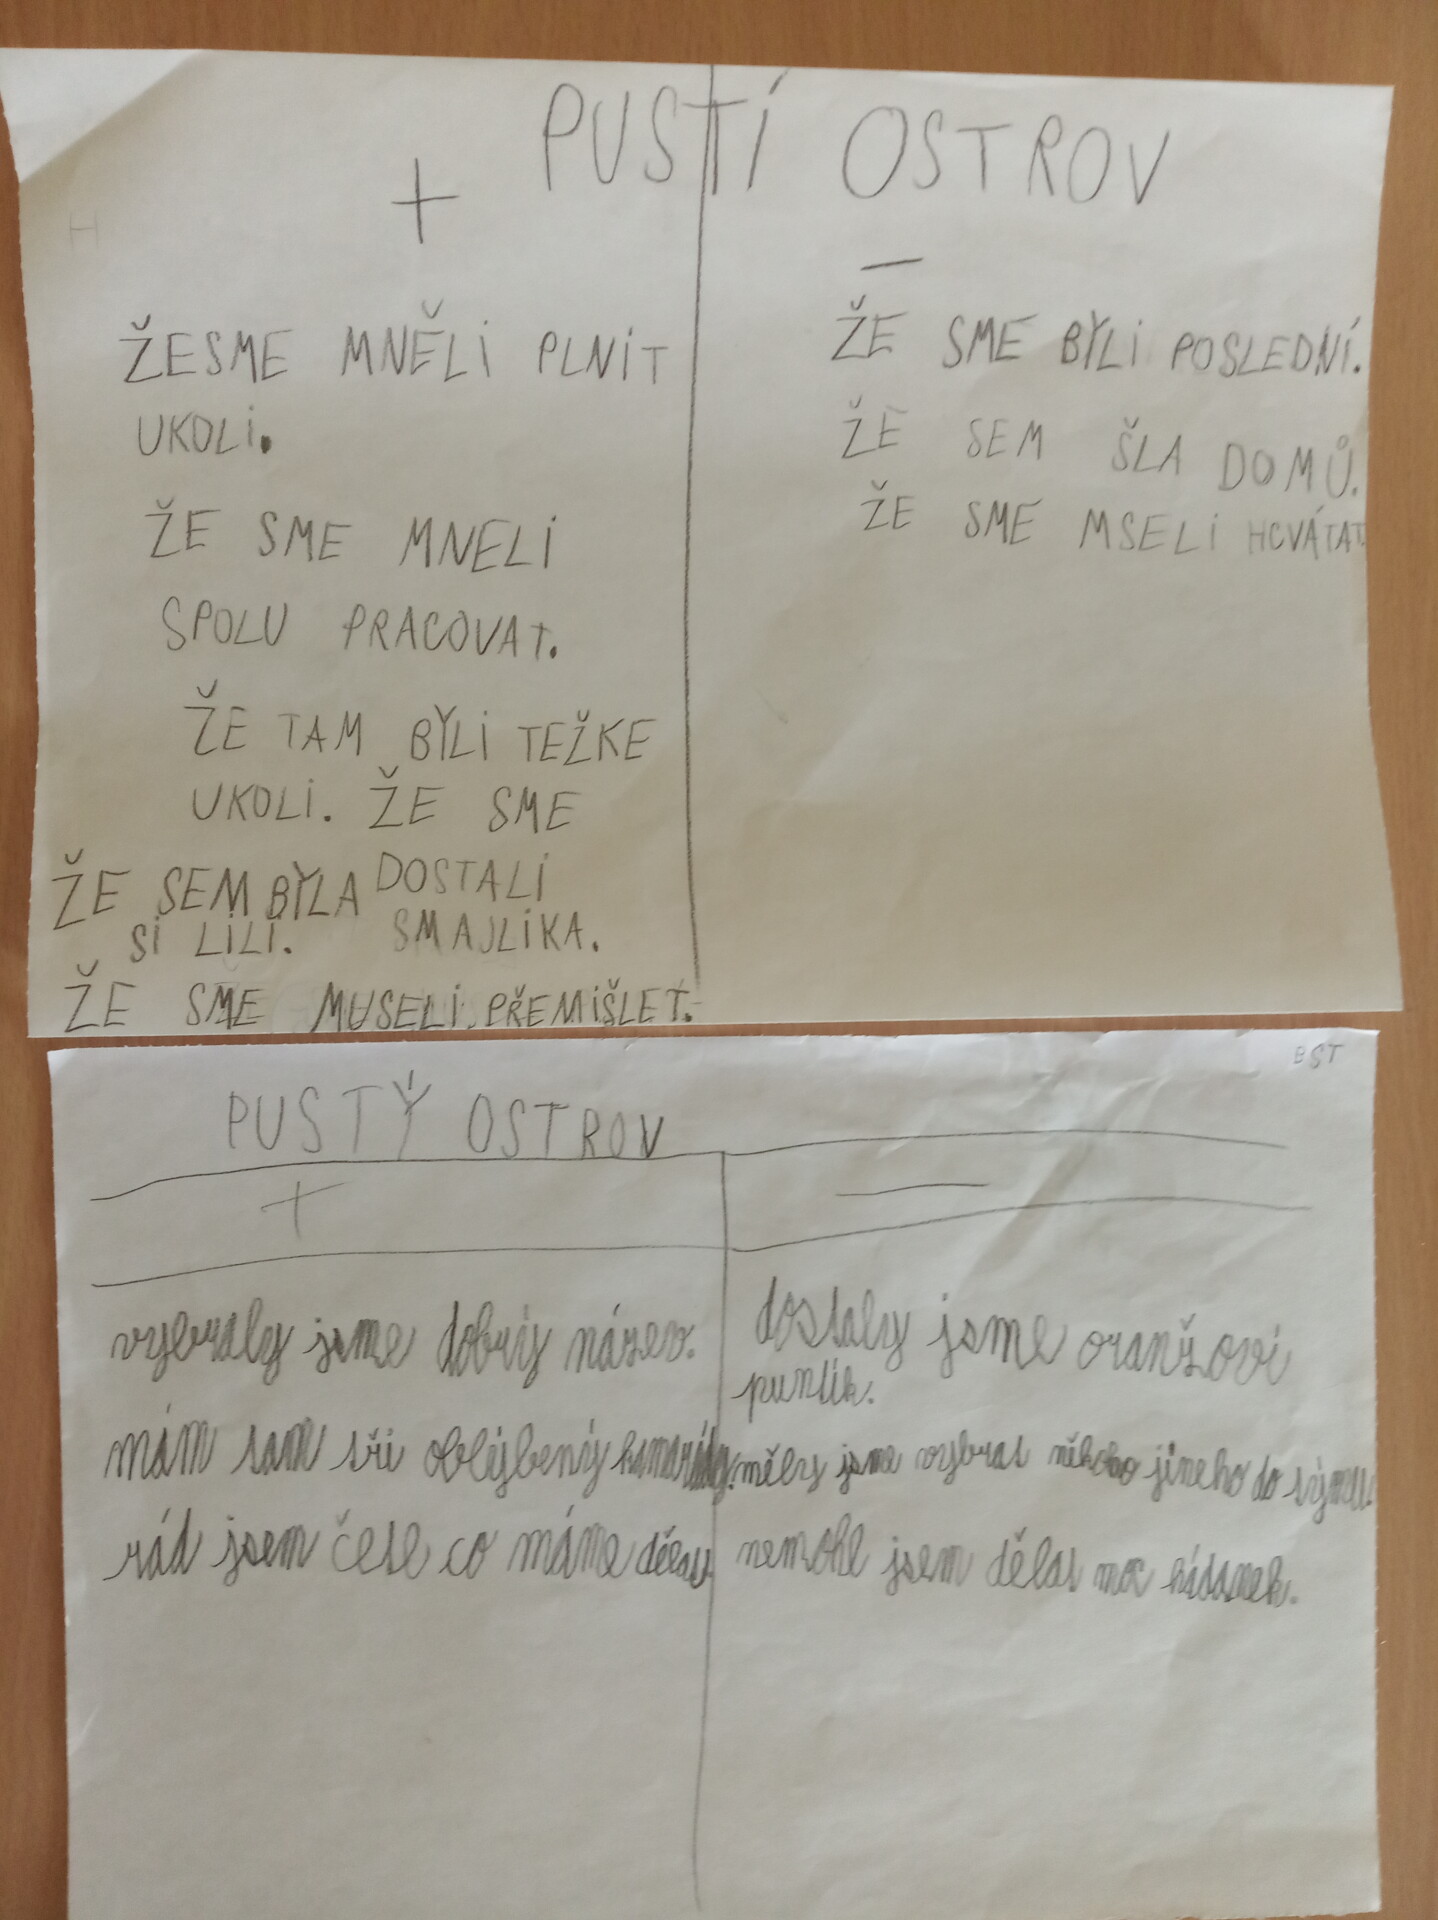 PUSTÍ OSTROV
+
H
ŽESME MNĚLI PLNIT
UKOLI.
ŽE SME MNELI
SPOLU PRACOVAT.
ŽE TAM BYLI TEŽKE
UKOLI. ŽE SME
DOSTALI
SMAJLIKA.
ŽE SEM BYLA
SI LILI.
ŽE SME MUSELI PŘEMIŠLET.
–
ŽE SME BYLI POSLEDNÍ.
ŽE SEM ŠLA DOMŮ.
ŽE SME MSELI HCVÁTAT.
BST
PUSTÝ OSTROV
+
vybraly jsme dobrý název.
mám tam tři oblýbený kamarády.
rád jsem čete co máme dělat.
–
dostaly jsme oranžoví
puntík.
měly jsme vybrat někoho jineho do týmu.
nemohl jsem dělat moc hádanek.